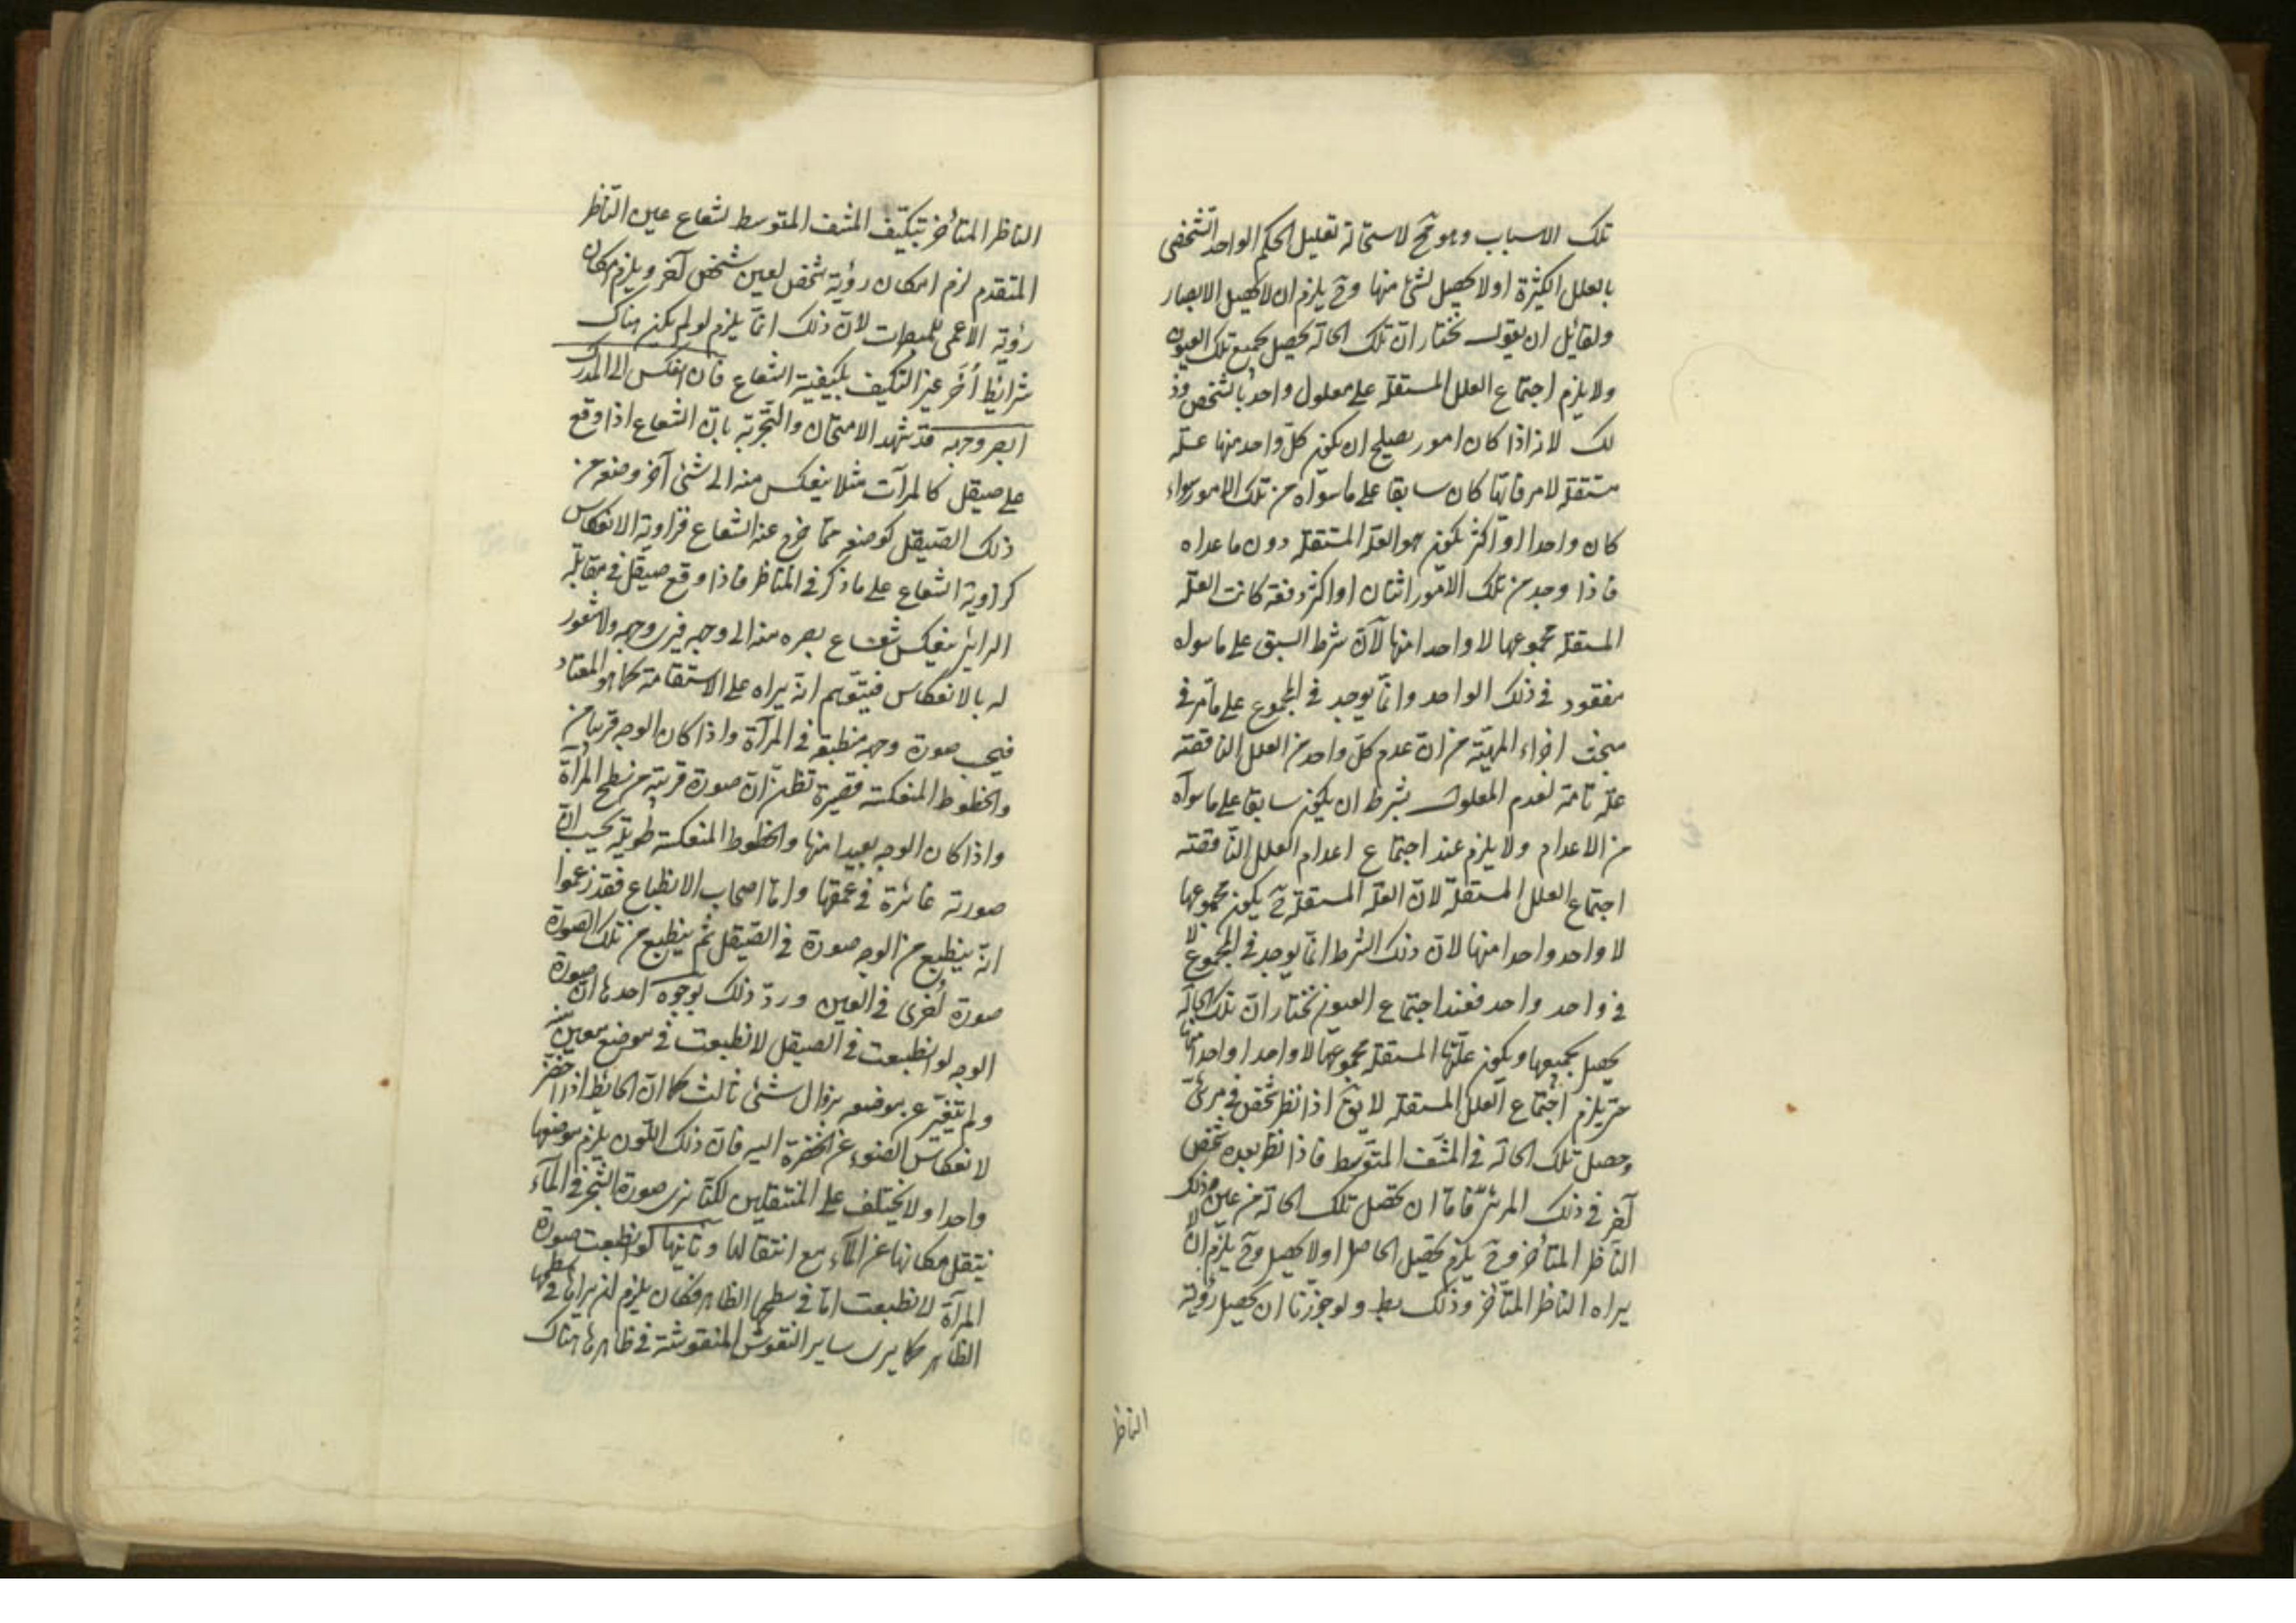 تلك الاسباب وهو مح لاستحالة تعليل الحكم الواحد الشخصى
بالعلل الكثيرة او لا يحصل لشئ منها وح يلزم ان لا يحصل الابصار
ولقايل ان يقول نختار ان تلك الحالة يحصل بجميع تلك العيون
ولا يلزم اجتماع العلل المستقلة على معلول واحد بالشخص وذ
لك لانه اذا كان امور يصلح ان يكون كل واحد منها علة
مستقلة لامر فايها كان سابقا على ما سواه من تلك الامور سواء
كان واحدا او اكثر يكون هو العلة المستقلة دون ما عداه
فاذا وجد من تلك الامور اثنان او اكثر دفعة كانت العلة
المستقلة مجموعها لا واحدا منها لان شرط السبق على ما سواه
مفقود في ذلك الواحد وانما يوجد في المجموع على ما مر في
مبحث اجزاء المهية من ان عدم كل واحد من العلل الناقصة
علة تامة لعدم المعلول بشرط ان يكون سابقا على ما سواه
من الاعدام ولا يلزم عند اجتماع اعدام العلل الناقصة
اجتماع العلل المستقلة لان العلة المستقلة ح يكون مجموعها
لا واحد واحدا منها لان ذلك الشرط انما يوجد في المجموع لا
في واحد واحد فعند اجتماع العيون نختار ان تلك الحالة
يحصل بجميعها ويكون علتها المستقلة مجموعها لا واحدا واحدا منها
حتى يلزم اجتماع العلل المستقلة لا يق اذا نظر شخص في مرئى
وحصل تلك الحالة في المشف المتوسط فاذا نظر بعده شخص
آخر في ذلك المرئى فاما ان يحصل تلك الحالة من عين ذلك
الناظر المتأخر وح يلزم تحصيل الحاصل او لا يحصل وح يلزم ان لا
يراه الناظر المتأخر وذلك بط ولو جوزنا ان يحصل رؤية
الناظر
الناظر المتأخر بتكيف المشف المتوسط لشعاع عين الناظر
المتقدم لزم امكان رؤية شخص لعين شخص آخر ويلزم امكان
رؤية الاعمى للمبصرات لان ذلك انما يلزم لو لم يكن هناك
شرايط أخر غير التكيف بكيفية الشعاع فان انعكس الى المدرك
ابصر وجهه قد شهد الامتحان والتجربة بان الشعاع اذا وقع
على صيقل كالمرآت مثلا ينعكس منه الى شئ آخر وضعه من
ذلك الصيقل كوضعه مما خرج عنه الشعاع فزاوية الانعكاس
كزاوية الشعاع على ما ذكر في المناظر فاذا وقع صيقل في مقابلة
الرايى ينعكس شعاع بصره منه الى وجهه فيرى وجهه ولا شعور
له بالانعكاس فيتوهم انه يراه على الاستقامة كما هو المعتاد
فيحسب صورة وجهه منطبعة في المرآة واذا كان الوجه قريبا من
والخطوط المنعكسة قصيرة تظن ان صورة قريبة من سطح المرآة
واذا كان الوجه بعيدا منها والخطوط المنعكسة طويلة يحسب ان
صورته غائرة في عمقها واما اصحاب الانطباع فقد زعموا
انه ينطبع من الوجه صورة في الصيقل ثم ينطبع من تلك الصورة
صورة أخرى في العين وردّ ذلك بوجوه احدها ان صورة
الوجه لو انطبعت في الصيقل لانطبعت في موضع معين منه
ولم يتغير عن موضعه بزوال شئ ثالث كما ان الحائط اذا اخضر
لانعكاس الضوء عن الخضرة اليه فان ذلك اللون يلزم موضعها
واحدا ولا يختلف على المنتقلين لكنا نرى صورة الشجر في الماء
ينتقل مكانها عن الماء مع انتقالنا وثانيها لو انطبعت صورة
المرآة لانطبعت اما في سطحها الظاهر فكان يلزم ان يراها في سطحها
الظاهر كما يرى ساير النقوش المنقوشة في ظاهرها هناك